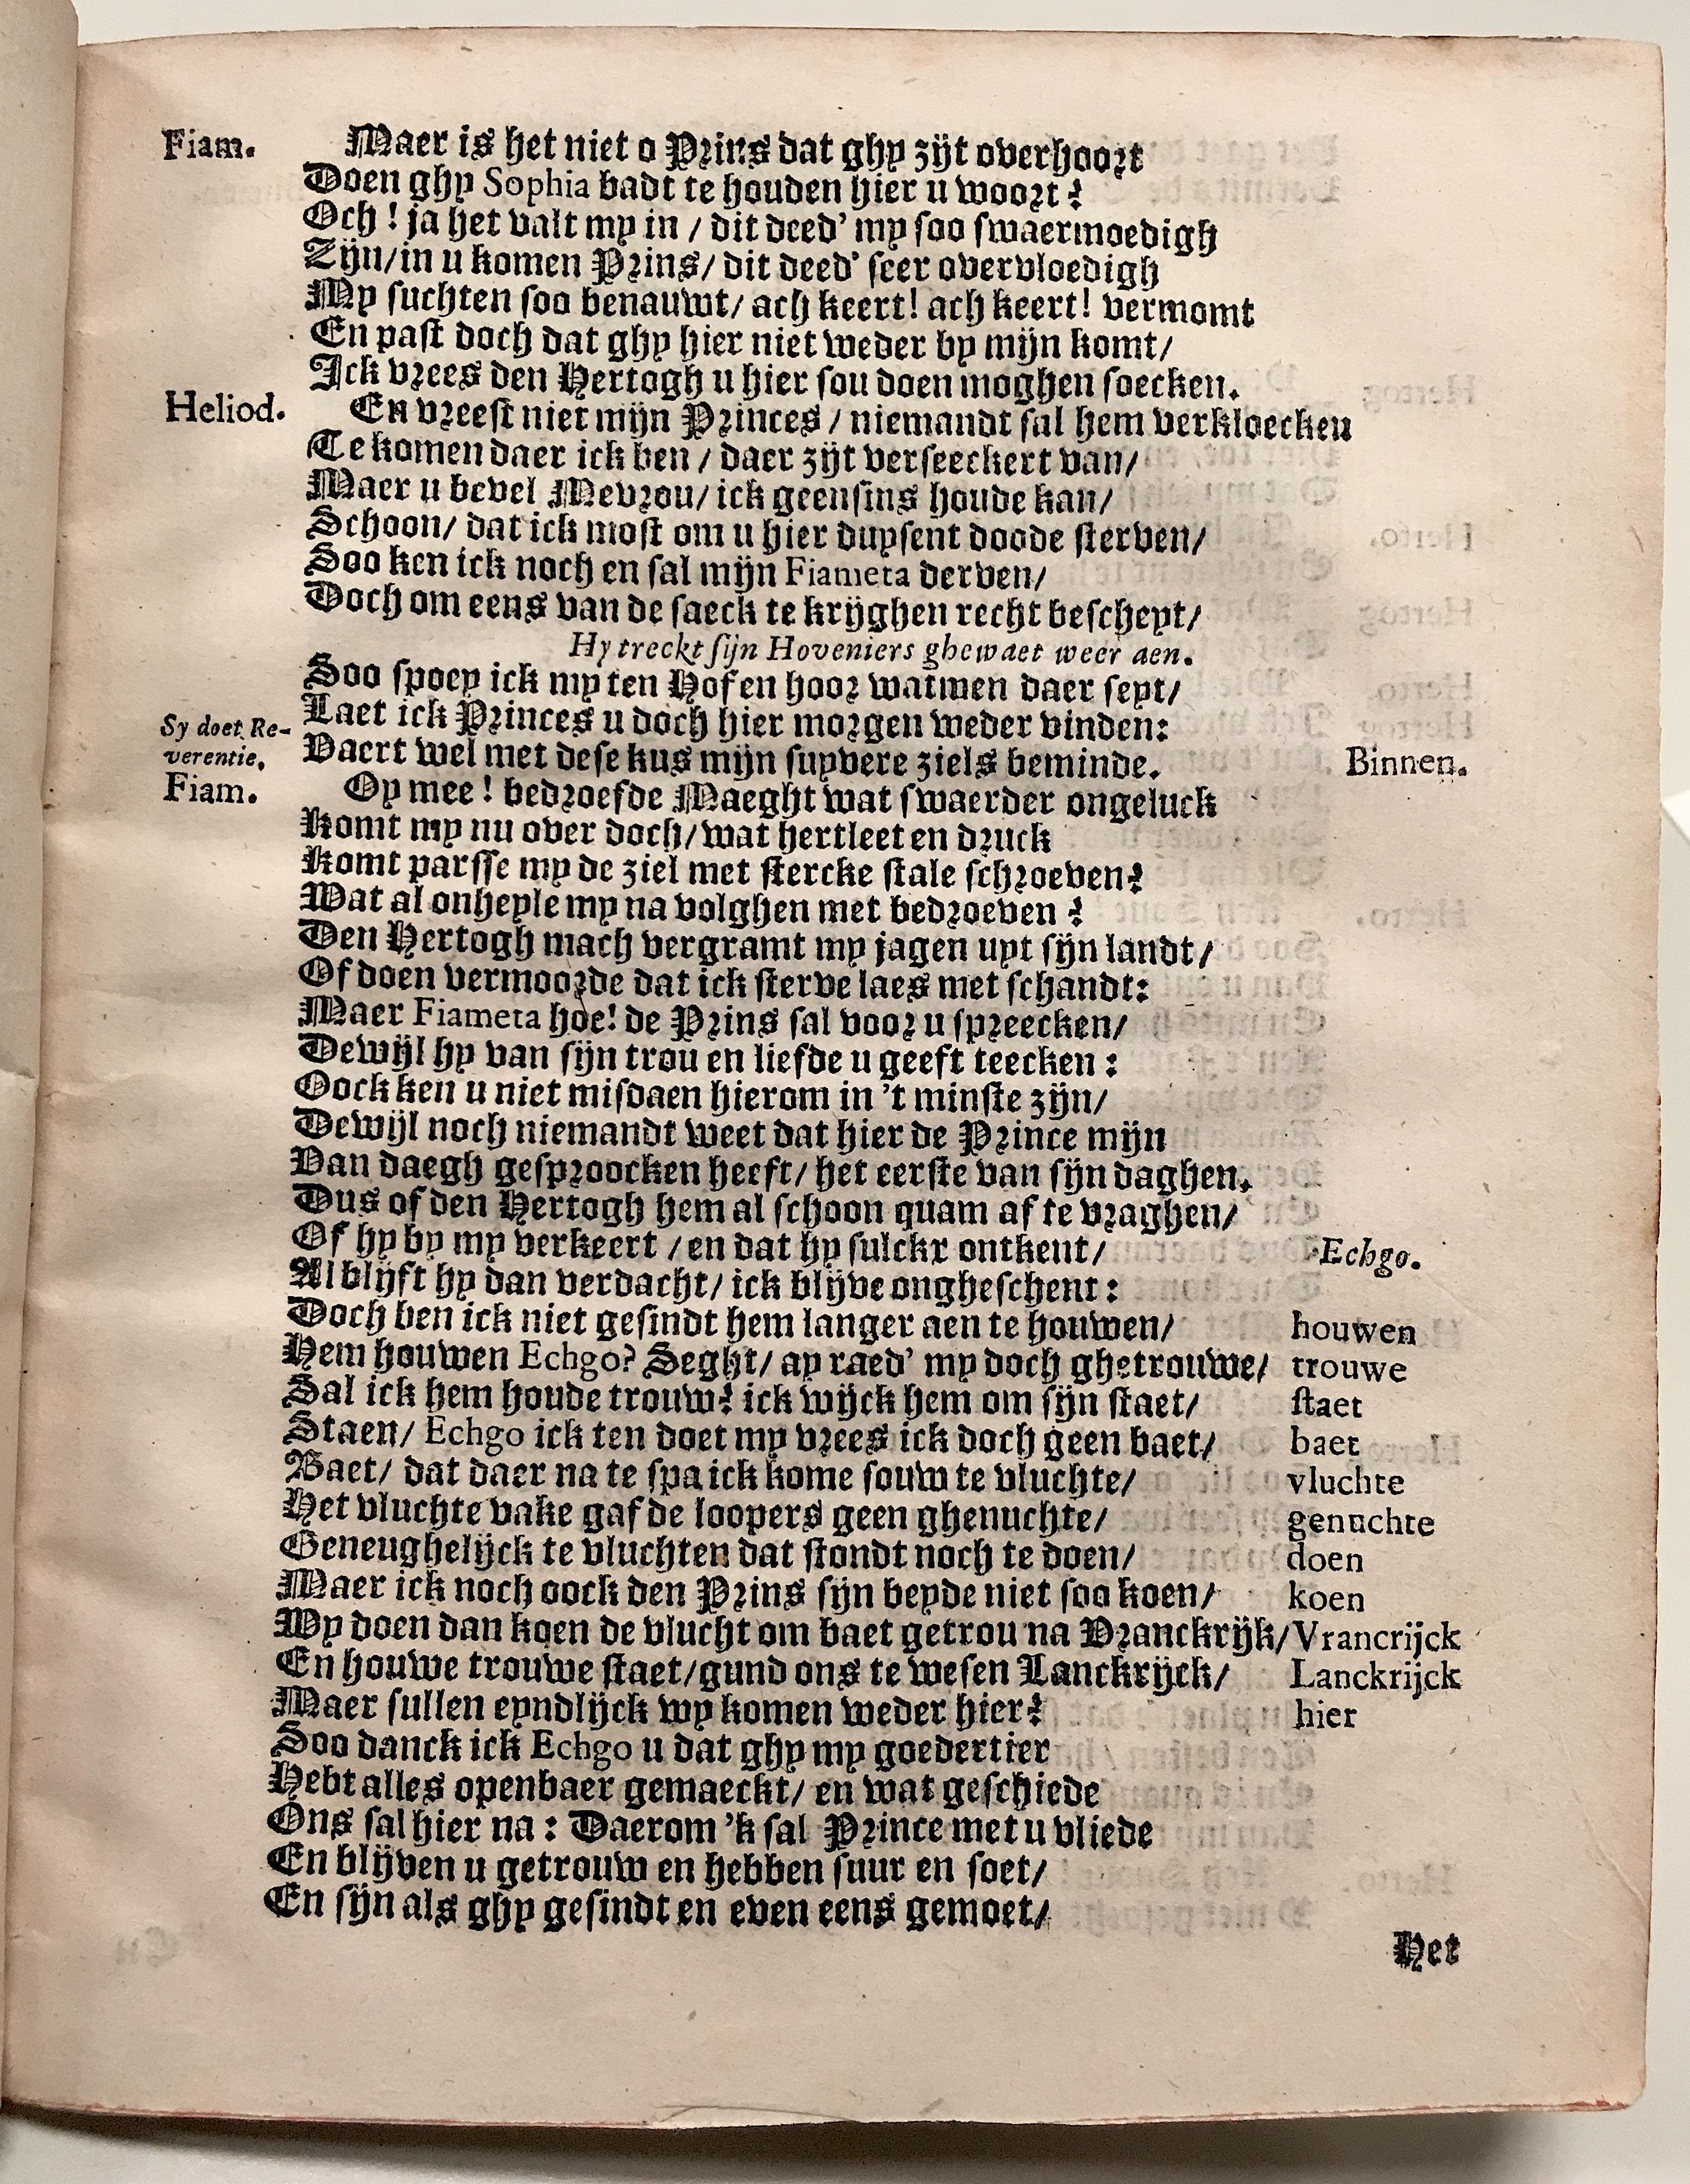 Fiam. Maer is het niet o Prins dat ghy zijt overhoort
Doen ghy Sophia badt te houden hier u woort?
Och! ja het valt my in / dit deed' my soo swaermoedigh
Zijn/in u komen Prins/ dit deed' seer overvloedigh
My suchten soo benauwt/ ach keert! ach keert! vermomt
En past doch dat ghy hier niet weder by mijn komt/
Ick vrees den Hertogh u hier sou doen moghen soecken.
Heliod. En vreest niet mijn Princes / niemandt sal hem verkloecken
Te komen daer ick ben / daer zijt verseeckert van/
Maer u bevel Mevrou/ ick geensins houde kan/
Schoon/ dat ick most om u hier duysent doode sterven/
Soo ken ick noch en sal mijn Fiameta derven/
Doch om eens van de saeck te krijghen recht bescheyt/
Hy treckt sijn Hoveniers ghewaet weer aen.
Soo spoey ick my ten Hof en hoor watmen daer seyt/
Laet ick Princes u doch hier morgen weder vinden:
Sy doet Re-
verentie.
Vaert wel met dese kus mijn suyvere ziels beminde. Binnen.
Fiam. Oy mee! bedroefde Maeght wat swaerder ongeluck
Komt my nu over doch/ wat hertleet en druck
Komt parsse my de ziel met stercke stale schroeven?
Wat al onheyle my na volghen met bedroeven?
Den Hertogh mach vergramt my jagen uyt sijn landt/
Of doen vermoorde dat ick sterve laes met schandt:
Maer Fiameta hoe! de Prins sal voor u spreecken/
Dewijl hy van sijn trou en liefde u geeft teecken:
Oock ken u niet misdaen hierom in 't minste zijn/
Dewijl noch niemandt weet dat hier de Prince mijn
Van daegh gesproocken heeft/ het eerste van sijn daghen.
Dus of den Hertogh hem al schoon quam af te vraghen/
Of hy by my verkeert / en dat hy sulckx ontkent/ Echgo.
Al blijft hy dan verdacht/ ick blijve ongheschent:
Doch ben ick niet gesindt hem langer aen te houwen/ houwen
Hem houwen Echgo? Seght/ ay raed' my doch ghetrouwe/ trouwe
Sal ick hem houde trouw? ick wijck hem om sijn staet/ staet
Staen/ Echgo ick ten doet my vrees ick doch geen baet/ baet
Baet/ dat daer na te spa ick kome souw te vluchte/ vluchte
Het vluchte vake gaf de loopers geen ghenuchte/ genuchte
Geneughelijck te vluchten dat stondt noch te doen/ doen
Maer ick noch oock den Prins sijn beyde niet soo koen/ koen
Wy doen dan koen de vlucht om baet getrou na Vranckrijk/ Vrancrijck
En houwe trouwe staet/gund ons te wesen Lanckrijck/ Lanckrijck
Maer sullen eyndlijck wy komen weder hier? hier
Soo danck ick Echgo u dat ghy my goedertier
Hebt alles openbaer gemaeckt/ en wat geschiede
Ons sal hier na: Daerom 'k sal Prince met u vliede
En blijven u getrouw en hebben suur en soet/
En sijn als ghy gesindt en even eens gemoet/
Het